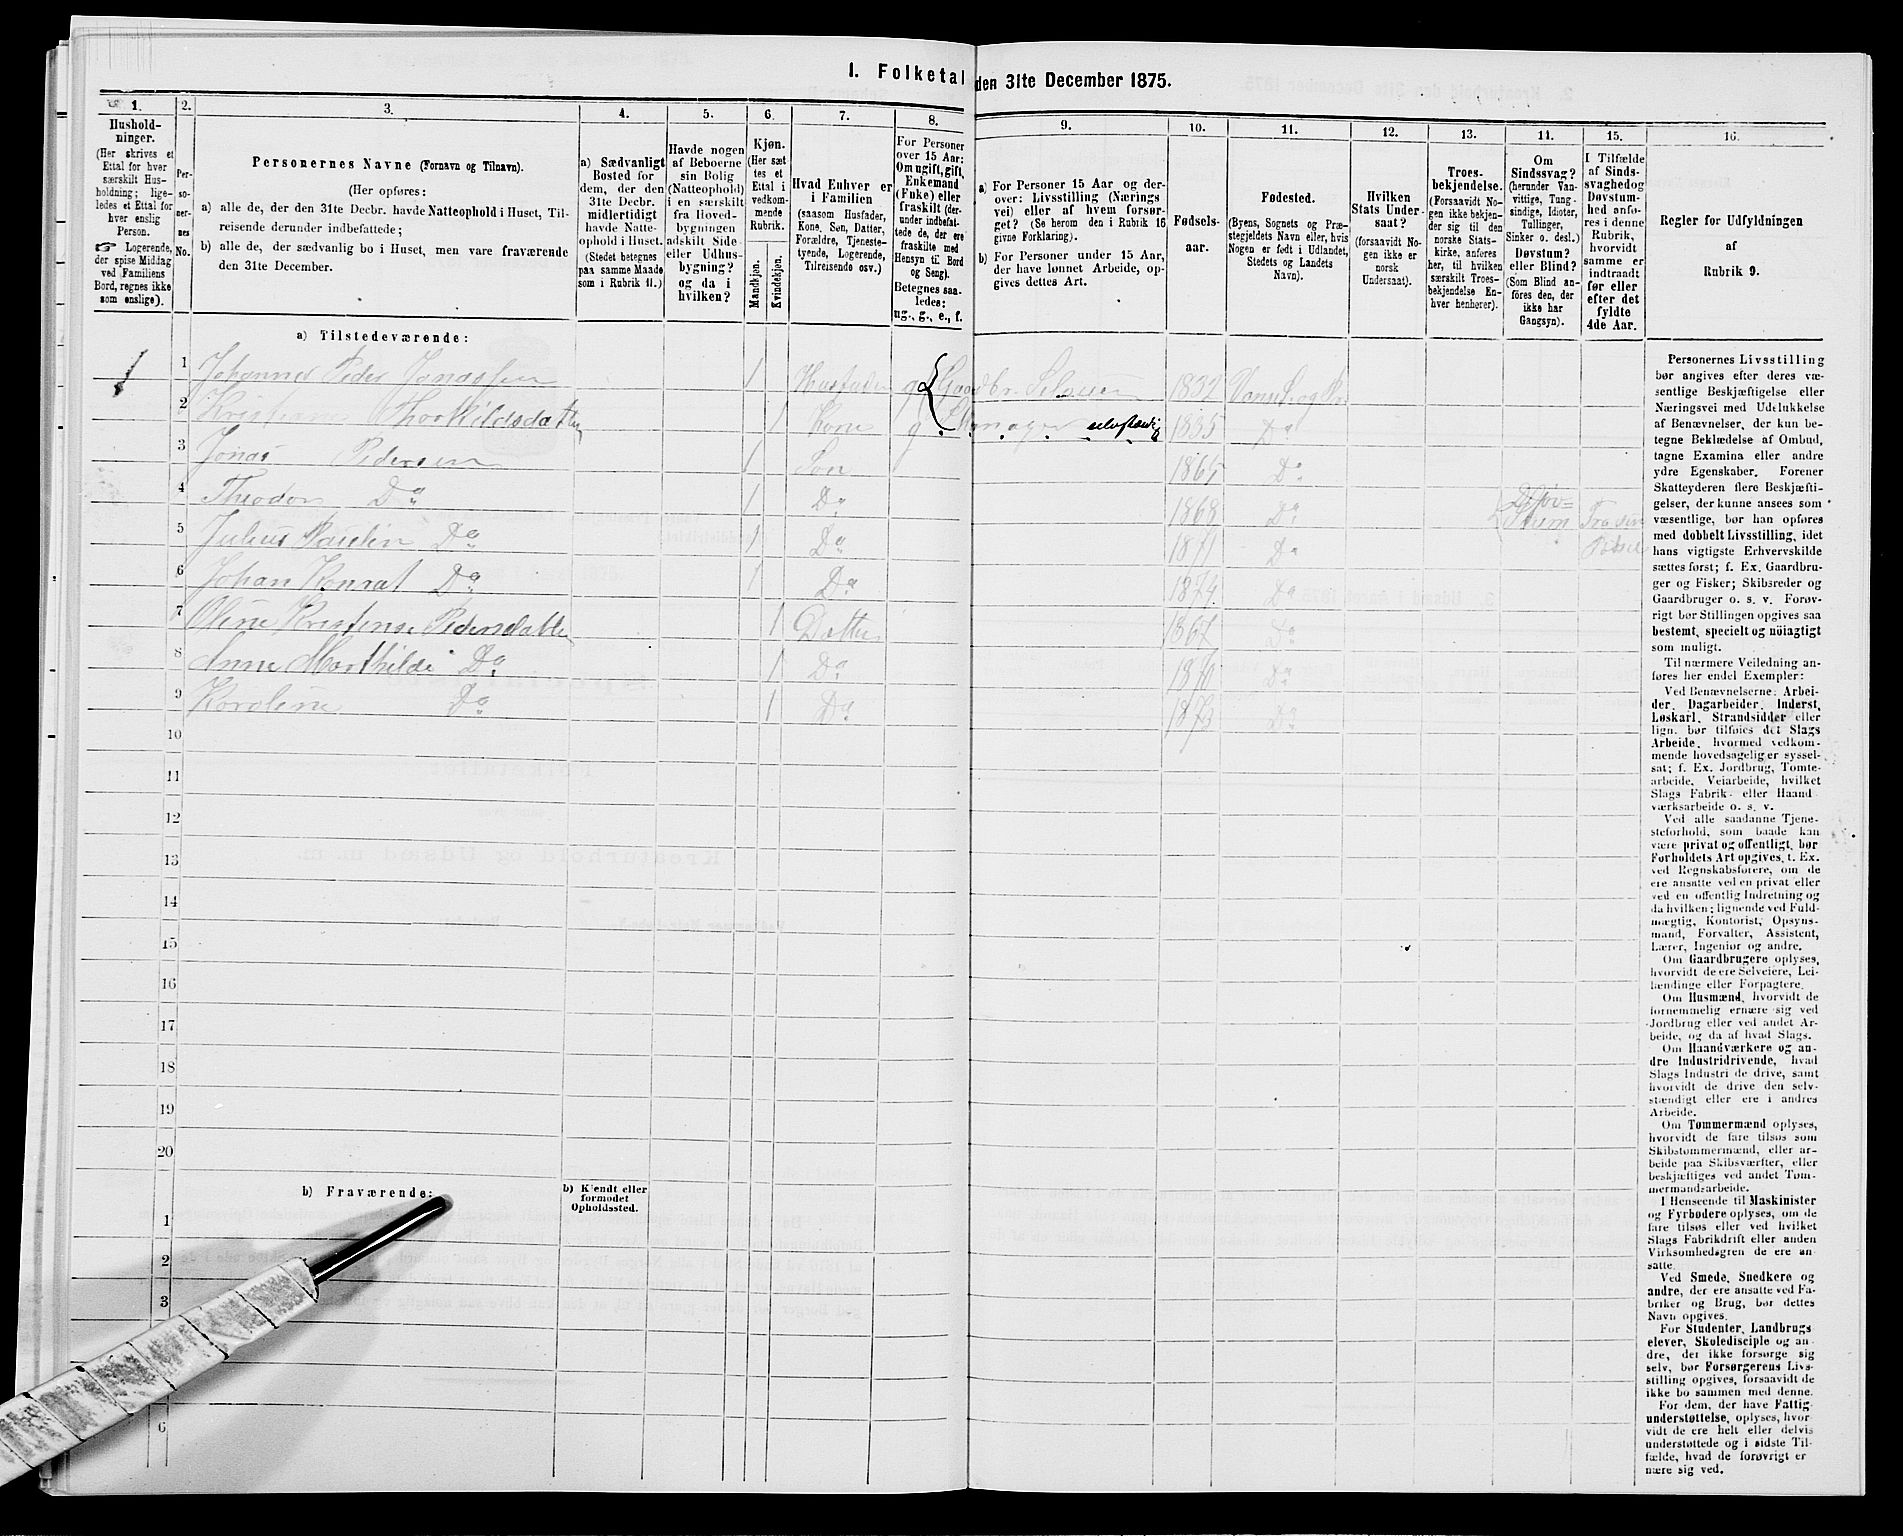 I. Folketal den 31te December 1875.
1.
Hushold-
ninger.
(Her skrives et
Ettal for hver
særskilt Hus-
holdning; lige-
ledes et Ettal for
hver enslig
Person.
☞ Logerende,
der spise Middag
ved Familiens
Bord, regnes ikke
som enslige).
2.
Per-
so-
ner-
nes
No.
3.
Personernes Navne (Fornavn og Tilnavn).
(Her opføres:
a) alle de, der den 31te Decbr. havde Natteophold i Huset, Til-
reisende derunder indbefattede;
b) alle de, der sædvanlig bo i Huset, men vare fraværende
den 31te December.
4.
a) Sædvanligt
Bosted for
dem, der den
31te Decbr.
midlertidigt
havde Natte-
ophold i Huset.
(Stedet betegnes
paa samme Maade
som i Rubrik 11.)
5.
Havde nogen
af Beboerne
sin Bolig
(Natteophold)
i en særskilt
fra Hoved-
bygningen
adskilt Side-
eller Udhus-
bygning?
og da i
hvilken?
6.
Kjøn.
(Her sæt
tes et
Ettal i
vedkom-
mende
Rubrik.
Mandkjøn.
Kvindekjøn.
7.
Hvad Enhver er
i Familien
(saasom Husfader,
Kone, Søn, Datter,
Forældre, Tjeneste-
tyende, Logerende,
Tilreisende osv.)
8.
For Personer
over 15 Aar:
Om ugift, gift,
Enkemand
(Enke) eller
fraskilt (der-
under indbefat-
tede de, der ere
fraskilte med
Hensyn til Bord
og Seng).
Betegnes saa-
ledes:
ug., g., e., f.
9.
a) For Personer 15 Aar og der-
over: Livsstilling (Nærings
vei) eller af hvem forsør-
get? (Se herom den i Rubrik 16
givne Forklaring).
b) For Personer under 15 Aar,
der have lønnet Arbeide, op-
gives dettes Art.
10.
Fødsels-
aar.
11.
Fødested.
(Byens, Sognets og Præ-
stegjeldets Navn eller, hvis
Nogen er født i Udlandet,
Stedets og Landets
Navn).
12.
Hvilken
Stats Under-
saat?
(forsaavidt No-
gen ikke er
norsk
Undersaat).
13.
Troes-
bekjendelse.
(Forsaavidt No-
gen ikke bekjen-
der sig til den
norske Stats-
kirke, anføres
her, til hvilken
særskilt Troes-
bekjendelse En-
hver henhører).
14.
Om
Sindssvag?
(herunder Van-
vittige, Tung-
sindige, Idioter,
Tullinger,
Sinker o. desl.)
Døvstum?
eller Blind?
(Som Blind an-
føres den, der
ikke har
Gangsyn).
15.
I Tilfælde
af Sinds-
svaghed og
Døvstum-
hed anfø-
res i denne
Rubrik,
hvorvidt
samme er
indtraadt
før eller
efter det
fyldte
4de Aar.
16.
Regler for Udfyldningen
af
Rubrik 9.
a) Tilstedeværende:
1 1 Johannes Peder Jonassen 1 Husfader g Gaardbr. Selveier 1832 Vanse
2 Thorkildsdatter 1 Kone g selvstændig 1835 Do
3 Jonas Pedersen 1 Søn 1865 Do
4 Theodor Do 1 Do 1868 Do
5 Julius Do 1 Do 1871 Do
6 Johan Konrat Do 1 Do 1874 Do
7 Oline Kristense Pedersdatter 1 Datter 1867 Do
8 Anne Marthilde Do 1 Do 1870 Do
9 Karoline Do 1 Do 1873 Do
10
11
12
13
14
15
16
17
18
19
20
b) Fraværende:
b) Kjendt eller
formodet
Opholdssted.
1
2
3
6
Personernes Livsstilling
bør angives efter deres væ-
sentlige Beskjæftigelse eller
Næringsvei med Udelukkelse
af Benævnelser, der kun be-
tegne Beklædelse af Ombud,
tagne Examina eller andre
ydre Egenskaber. Forener
Skatteyderen flere Beskjæfti-
gelser, der kunne ansees som
væsentlige, bør han opføres
med dobbelt Livsstilling, idet
hans vigtigste Erhvervskilde
sættes først; f. Ex. Gaardbru-
ger og Fisker; Skibsreder og
Gaardbruger o. s. v. Forøv-
rigt bør Stillingen opgives saa
bestemt, specielt og nöiagtigt
som muligt.
Til nærmere Veiledning an-
føres her endel Exempler:
Ved Benævnelserne: Arbei-
der, Dagarbeider, Inderst,
Løskarl, Strandsidder eller
lign. bør tilføies det Slags
Arbeide, hvormed vedkom-
mende hovedsagelig er syssel-
sat; f. Ex. Jordbrug, Tomte-
arbeide, Veiarbeide, hvilket
Slags Fabrik- eller Haand
værksarbeide o. s. v.
Ved alle saadanne Tjene-
steforhold, som baade kan
være privat og offentligt, bør
Forholdets Art opgives, f. Ex.
ved Regnskabsførere, om de
ere ansatte ved en privat eller
ved en offentlig Indretning og
da hvilken; lignende ved Fuld-
mægtig, Kontorist, Opsyns-
mand, Forvalter, Assistent,
Lærer, Ingeniør og andre.
Om Gaardbrugere oplyses,
hvorvidt de ere Selveiere, Lei-
lændinge eller Forpagtere.
Om Husmænd, hvorvidt de
fornemmelig ernære sig ved
Jordbrug eller ved andet Ar-
beide, og da af hvad Slags.
Om Haandværkere og an-
dre Industridrivende, hvad
Slags Industri de drive, samt
hvorvidt de drive den selv-
stændigt eller ere i andres
Arbeide.
Om Tømmermænd oplyses,
hvorvidt de fare tilsøs som
Skibstømmermænd, eller ar-
beide paa Skibsværfter, eller
beskjæftiges ved andet Tøm-
mermandsarbeide.
I Henseende til Maskinister
og Fyrbødere oplyses, om de
fare tilsøs eller ved hvilket
Slags Fabrikdrift eller anden
Virksomhedsgren de ere an-
satte.
Ved Smede, Snedkere og
andre, der ere ansatte ved Fa-
briker og Brug, bør dettes
Navn opgives.
For Studenter, Landbrugs
elever, Skoledisciple og an-
dre, der ikke forsørge sig
selv, bør Forsørgerens Livs-
stilling opgives, forsaavidt de
ikke bo sammen med denne.
For dem, der have Fattig-
understøttelse, oplyses, hvor-
vidt de ere helt eller delvis
understøttede og i sidste Til-
fælde, hvad de forøvrigt er
nære sig ved.